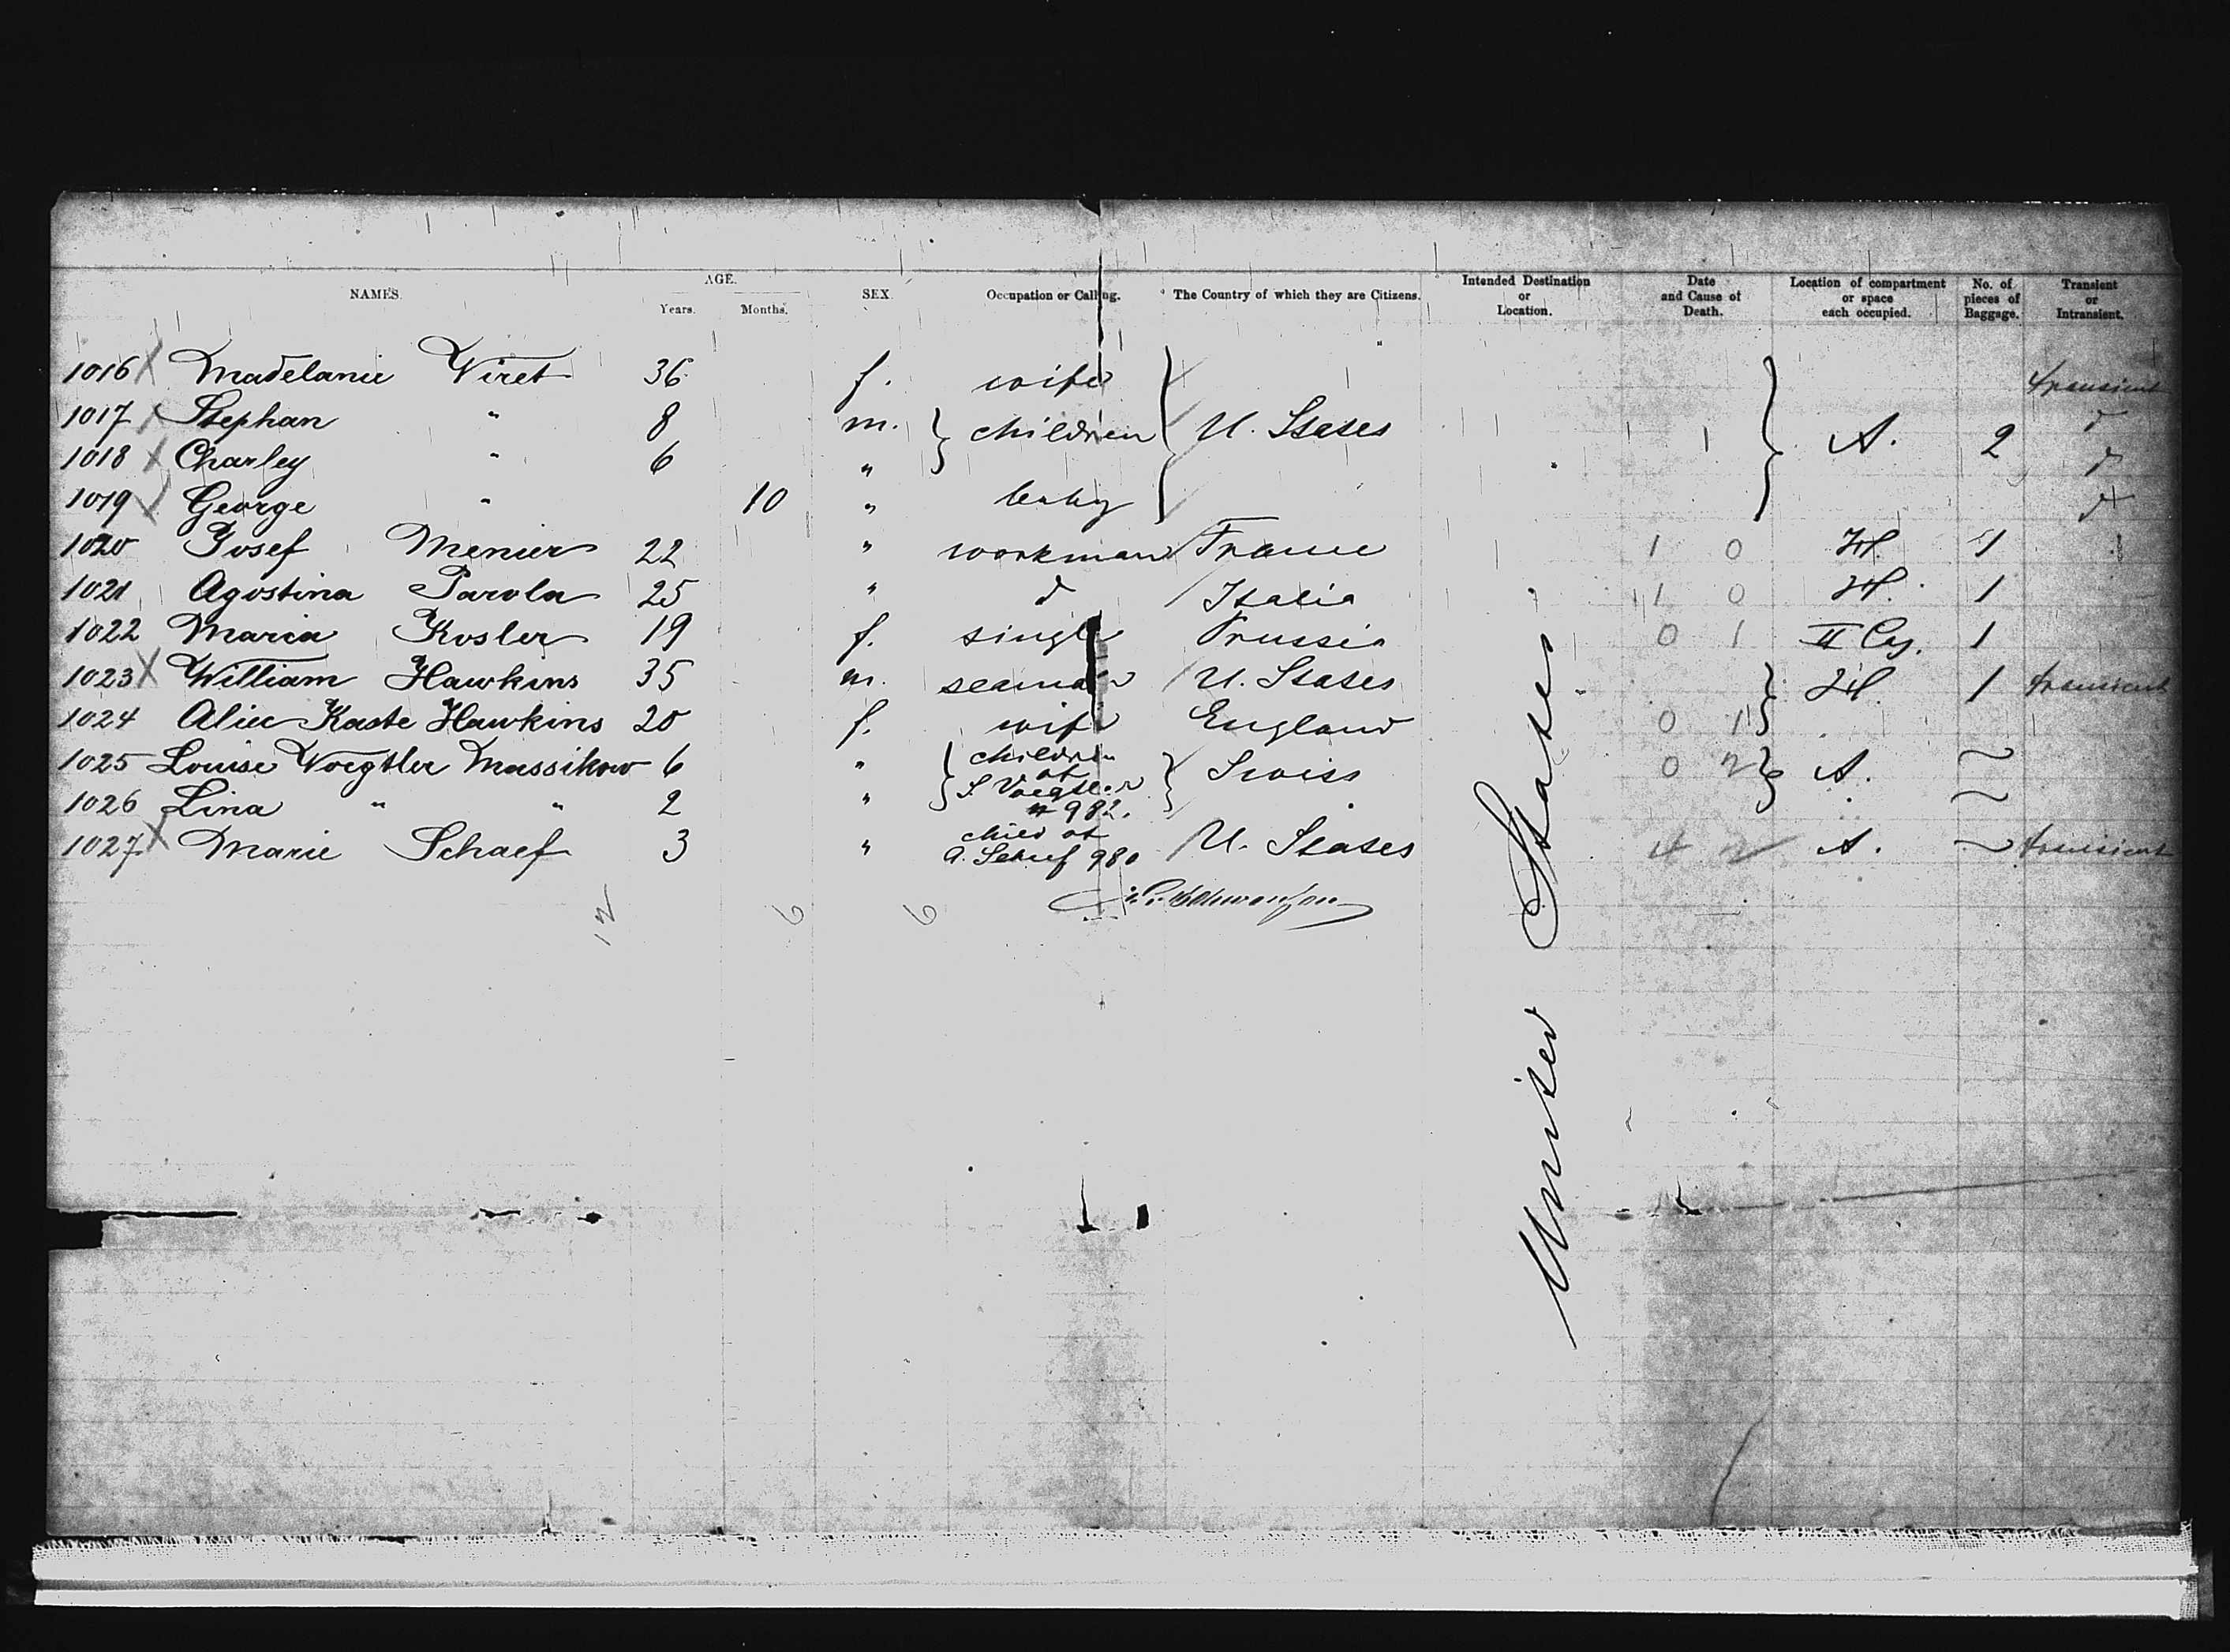 NAMES. AGE. Years. Months. SEX. Occupation or Calling. The Country of which they are Citizens. Intended Destination or Location. Date and Cause of Death. Location of compartment or space each occupied. No. of pieces of Baggage. Transient or Intransient.
1016 X Madelanie Viret 36 f. wife transient
1017 X Stephan " 8 m. children U. States 1 A. 2 d
1018 X Charley " 6 " d
1019 X George " 10 " baby d
1020 Josef Menier 22 " workman France 1 0 1
1021 Agostina Parola 25 " d Italia 1 0 1
1022 Maria Kosler 19 f. single Prussia 0 1 II Caj. 1
1023 X William Hawkins 35 m. seaman U. States 1 transient
1024 Alice Kaste Hawkins 20 f. wife England 0 1
1025 Louise Voegtler Massikow 6 " children of S. Voegtler Swiss 0 2 A. ~
1026 Lina " " 2 " # 982. ~
1027 X Marie Schaef 3 " child of A. Schaef 980 U. States 4 2 A. ~ transient
12 6 6
United States